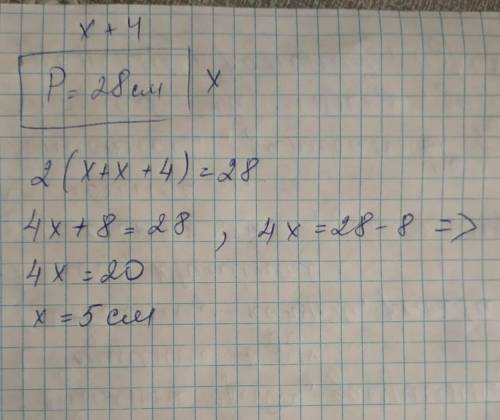 x + 4
P = 28 см
x
2 (x+x +4) = 28
4x + 8 = 28 , 4x = 28 - 8 =>
4x = 20
x = 5 см